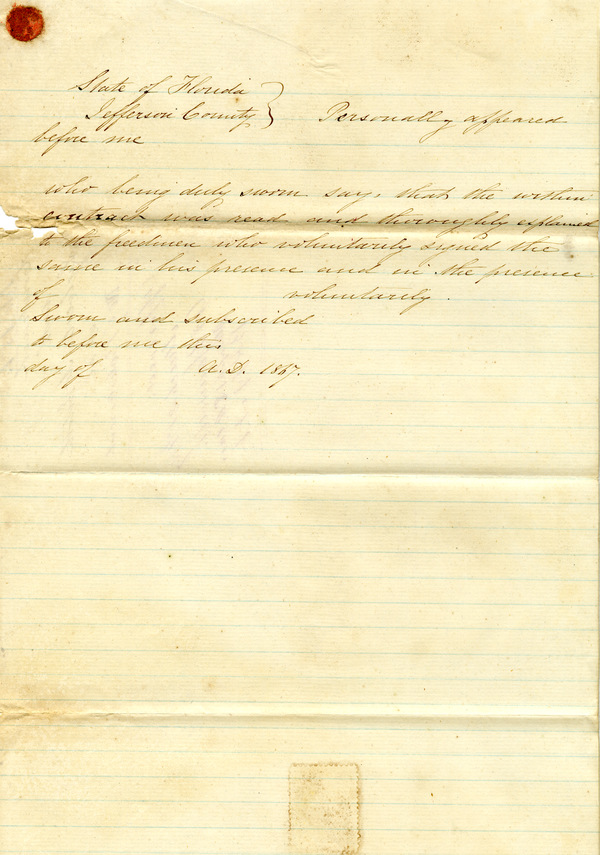 State of Florida
Jefferson County } Personally appeared
before me
who being duly sworn say, that the within
contract was read and thoroughly explained
to the freedmen who voluntarily signed the
same in his presence and in the presence
of voluntarily.
Sworn and subscribed
to before me this
day of A.D. 1867.